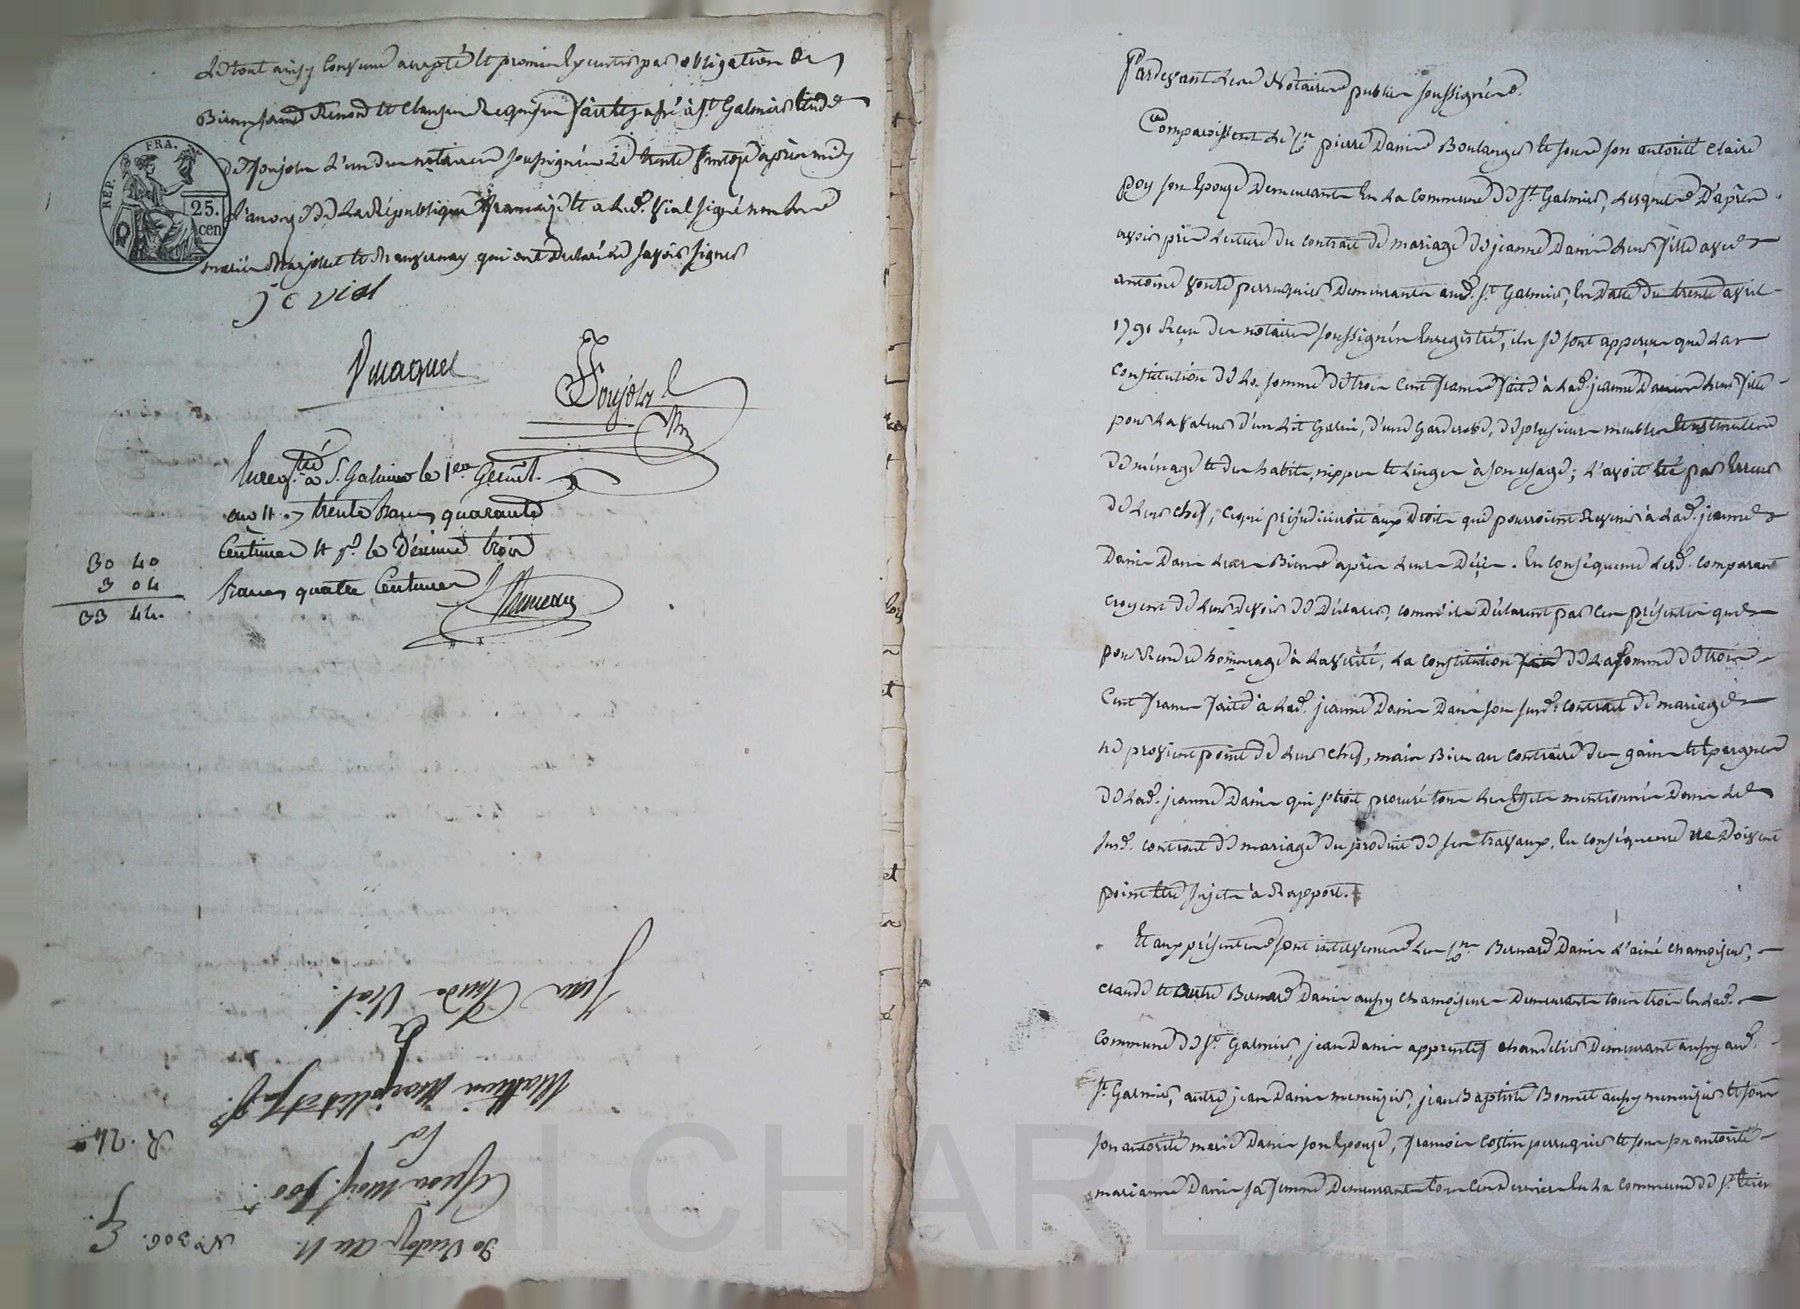 Le tout ainsy convenu accepté et promis executer par obligation de
Biens, soumis Renond et Clauses Requises fait et passé à St. Galmier Etude
de Ponjolat l'un des notaires soussignés Le trente ventose après midy
l'an onze de La République française et a Led. Vial signé non led.
Mathieu Marjollet de ce enquis qui ont Declaré ne savoir signer
j c vial
REP. FRA.
25.
cen
Enregistré à St. Galmier le 1er. Germl.
an 11. Rs trente francs quarante
Centimes et pr. le Décime trois
francs quatre Centimes
30 40
3 04
33 44.
Jean Claude Vial.
à
Mathieu Marjollet
Par
Cession Moyt. 700
30 Ventose an 11.
No 306.
R. 24
Pardevant Les Notaires publics soussignés.
Comparoissent Le Cn. pierre Danis Boulanger et sous son autorité Claire
poy son Epouse Demeurants En La Commune de St. Galmier, Lesquels D'après
avoir pris Lecture du contrat de mariage de jeanne Danis Leur fille avec
antoine youd perruquier Demeurants aud. St. Galmier, En Datte du trente avril
1791 Reçu des notaires soussignés Enregistré, ils se sont apperçu que La
Constitution de La somme de trois Cent francs faite à Lad. jeanne Danis Leur fille
pour La valeur d'un Lit Garni, d'une Garderobe, de plusieurs meubles et ustensiles
de ménage et des habits, nippes et Linges à son usage; L'avoit été par Erreur
de Leur chef, Ce qui préjudicieroit aux Droits que pourroient Revenir à Lad. jeanne
Danis Dans Leurs Biens après Leurs Décès. En Conséquence Lesd. comparants
croyent de Leur devoir de Déclarer, comme ils Déclarent par Ces présentes que
pour Rendre hommage à La vérité, La constitution faite de La somme de trois
Cent francs faite à Lad. jeanne Danis Dans son susd. contrat de mariage
ne provient point de Leur chef, mais Bien au contraire des gains et Epargnes
de Lad. jeanne Danis qui s'étoit procuré tous Les Effets mentionnés Dans Le
susd. contrat de mariage du produit de ses travaux, En conséquence ne Doivent
point Etre sujets à Rapport.
Et aux présentes sont intervenus Les Cns. Bernard Danis L'ainé chamoiseur,
claude et autre Bernard Danis aussy chamoiseurs Demeurants tous trois En Lad.
Commune de St. Galmier, jean Danis apprentif chandelier Demeurant aussy aud.
St. Galmier, autre jean Danis menuizier, jean Baptiste Bonnet aussy menuizier et sous
son autorité marie Danis son Epouse, francois Costin perruquier et sous son autorité
marianne Danis sa femme Demeurants tous Ces Derniers En La Commune de St. Etien
CHAREYRON